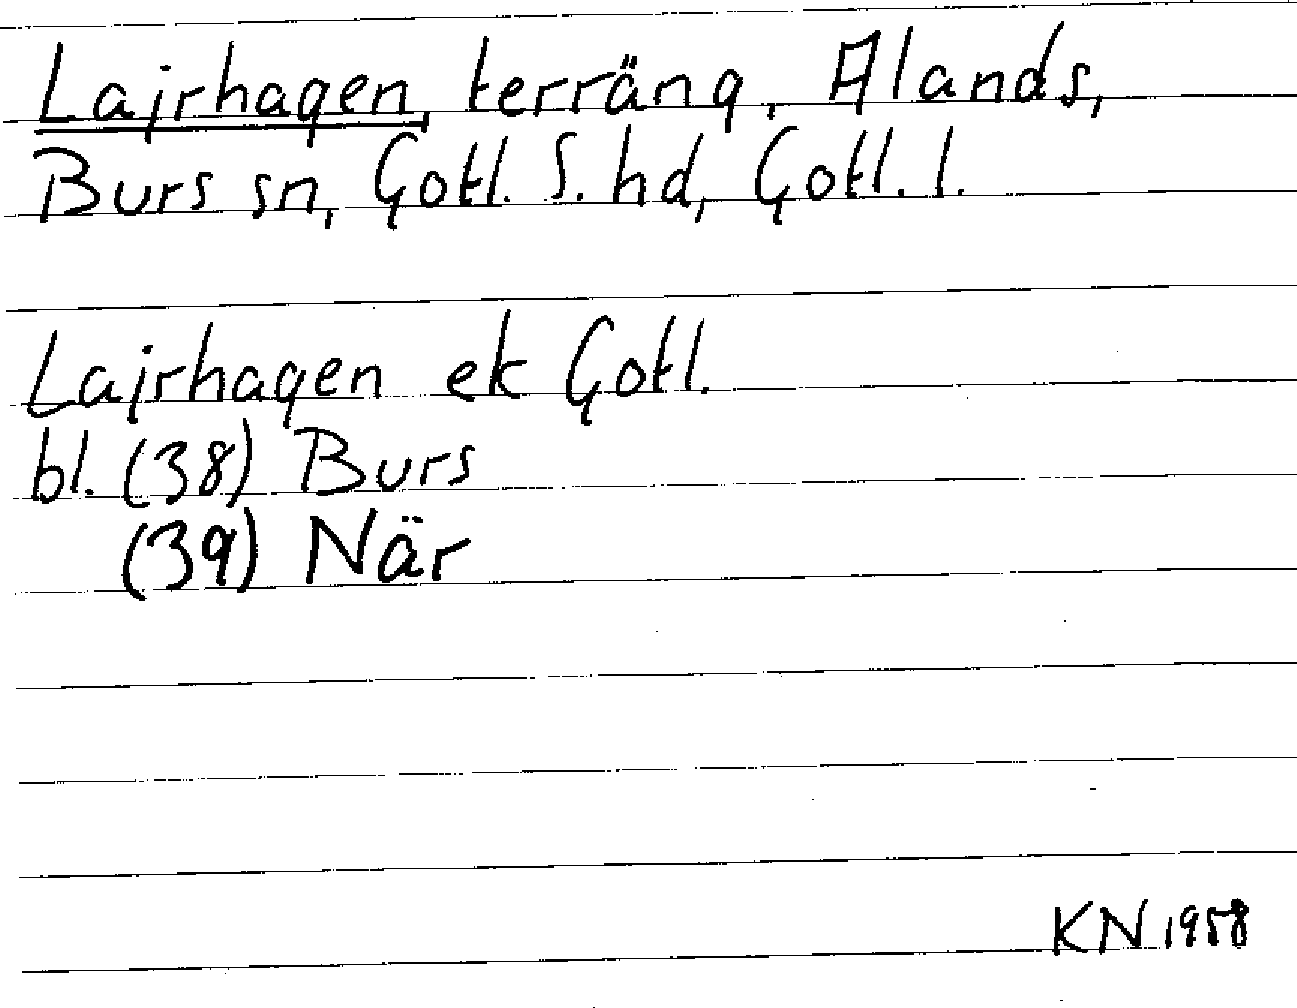 Lajrhagen, terräng, Alands,
Burs sn, Gotl. S. hd, Gotl. l.
Lajrhagen ek Gotl.
bl. (38) Burs
(39) När
KN 1958